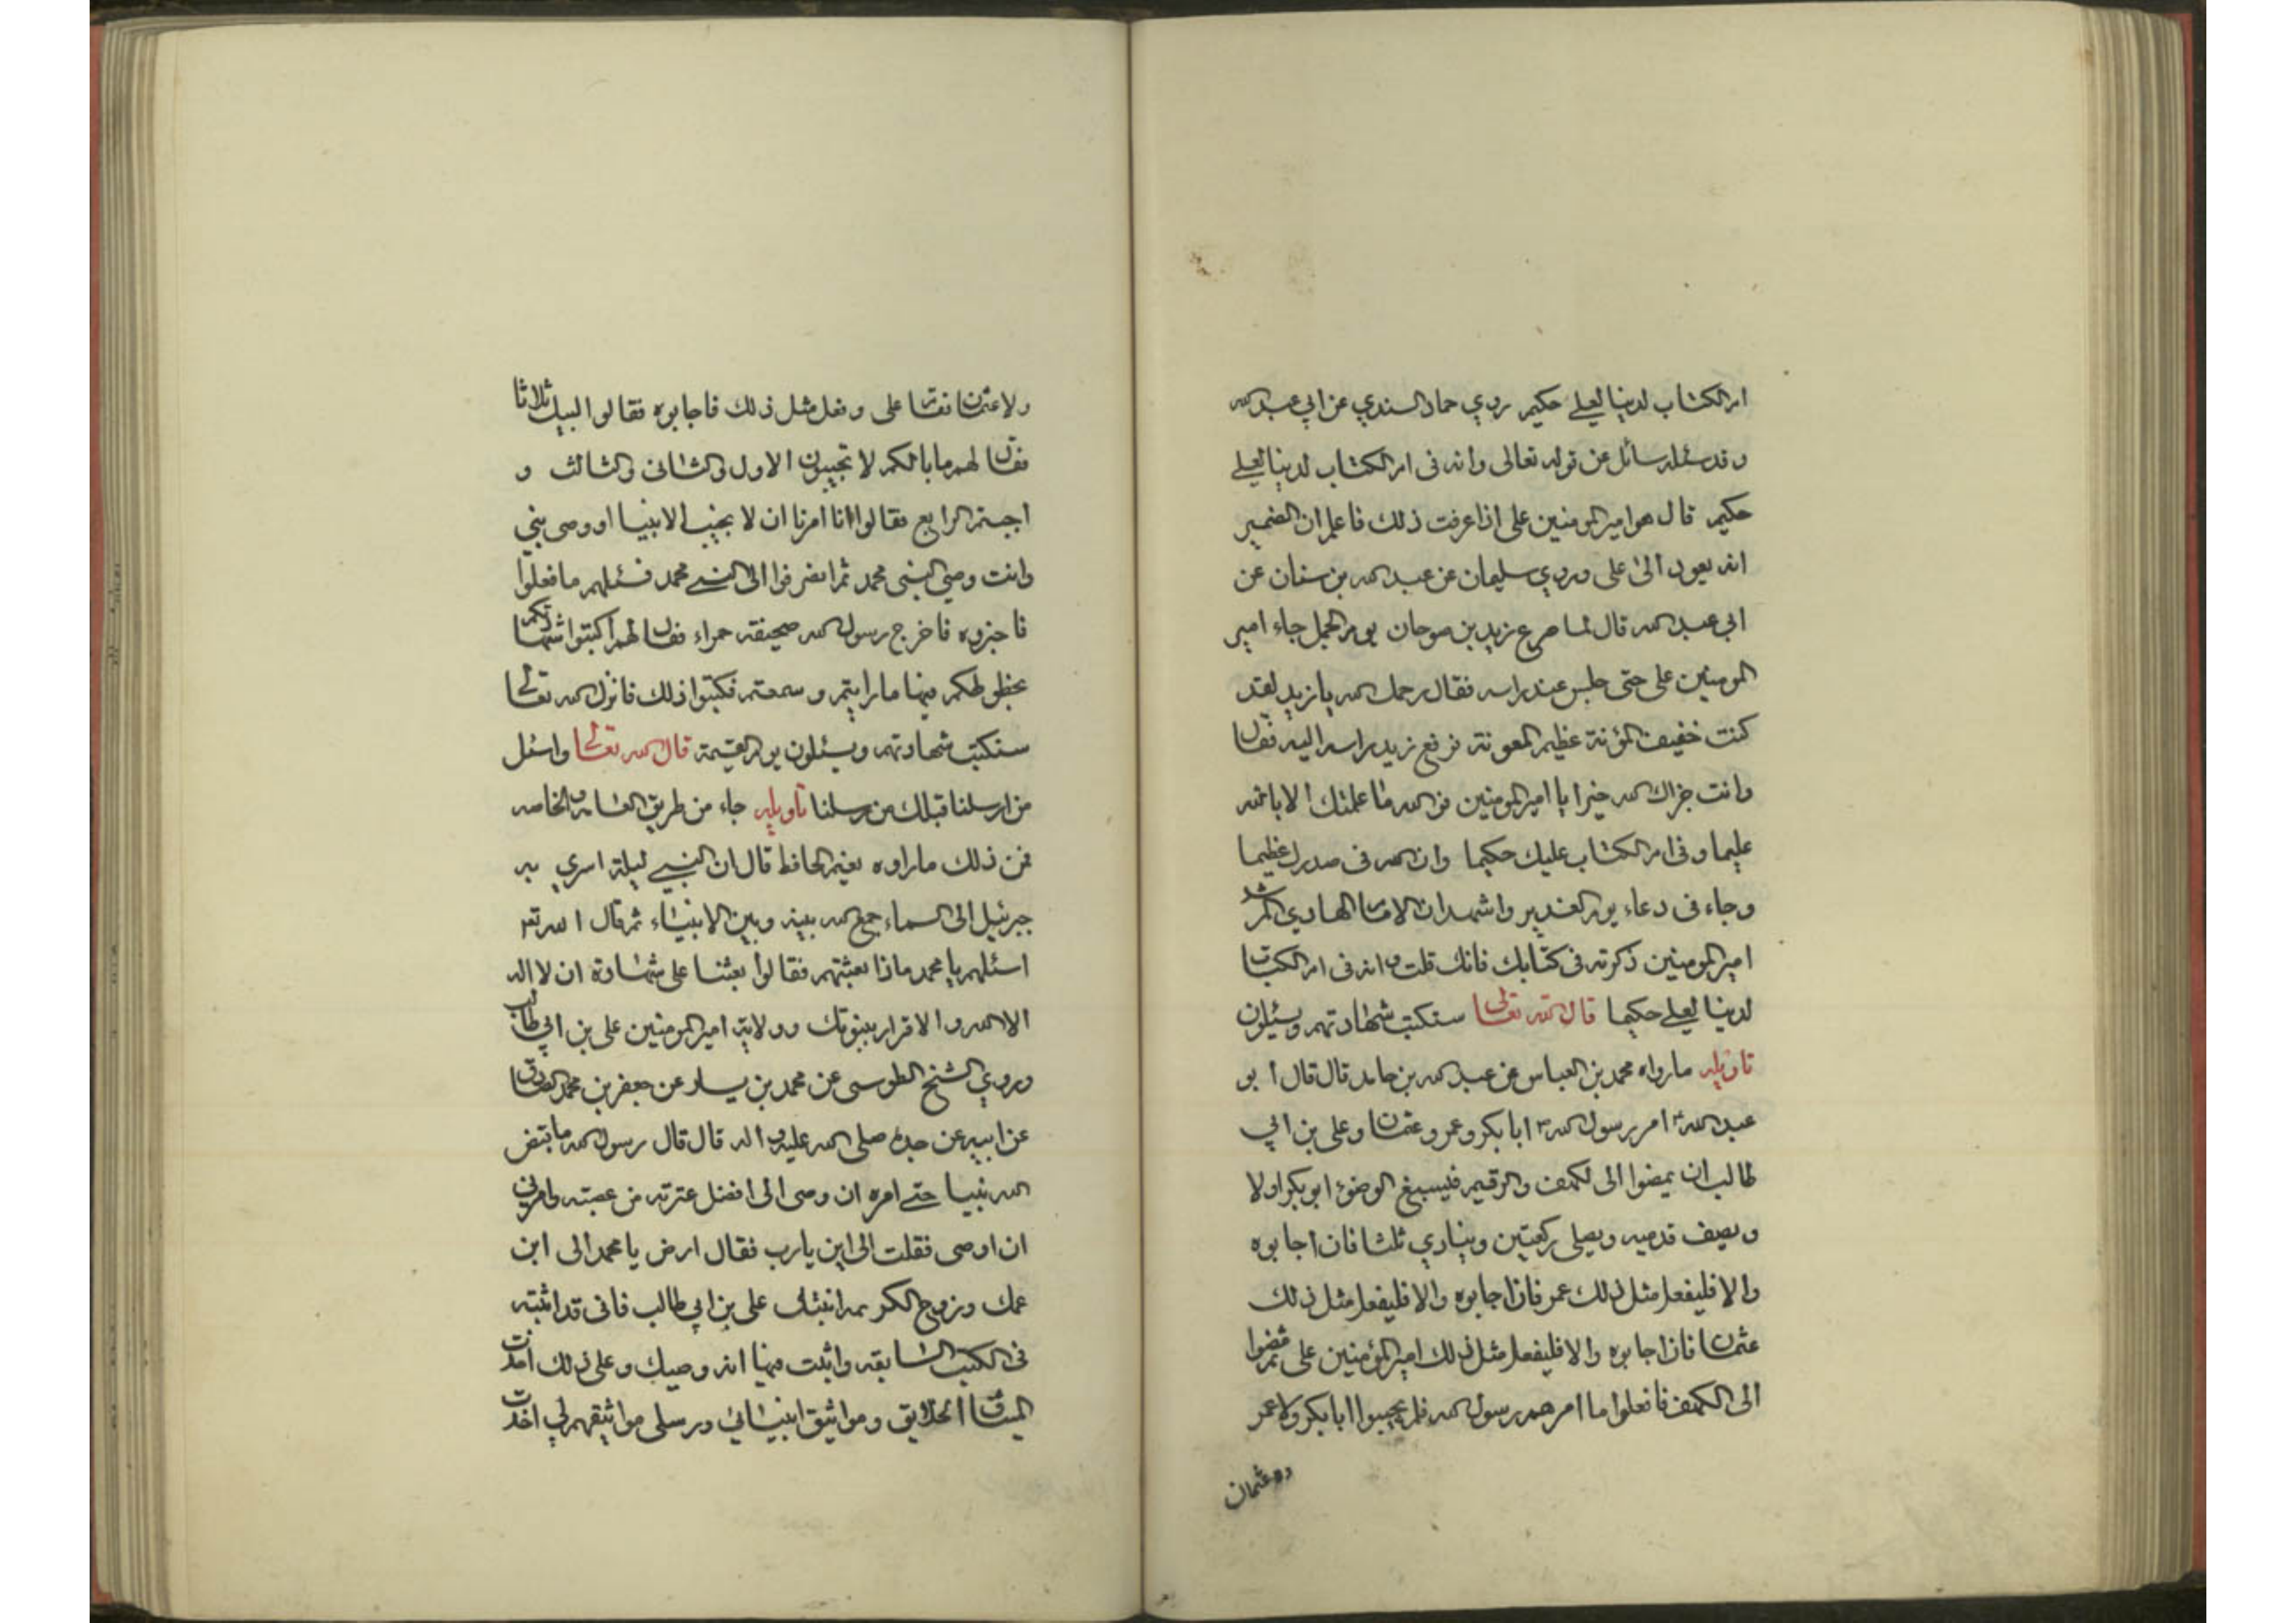 ام الكتاب لدينا لعلي حكيم روي حماد السندي عن ابي عبد الله
و قد سئله سائل عن قوله تعالى وانه في ام الكتاب لدينا لعلي
حكيم قال هو امير المومنين علي اذا عرفت ذلك فاعلم ان الضمير
انه يعود الى علي وروي سليمان عن عبد الله بن سنان عن
ابي عبد الله قال لما صرع زيد بن صوحان يوم الجمل جاء امير
المومنين علي حتى جلس عند راسه فقال رحمك الله يا زيد لقد
كنت خفيف المؤنة عظيم المعونة فرفع زيد راسه اليه فقال
وانت جزاك الله خيرا يا امير المومنين فو الله ما علمتك الا بالله
عليما و في ام الكتاب عليك حكيما وان الله في صدرك عظيما
وجاء في دعاء يوم الغدير واشهد ان الامام الهادي المرشد
امير المومنين ذكرته في كتابك فانك قلت وانه في ام الكتاب
لدينا لعلي حكيما قال الله تعالى ستكتب شهادتهم ويسئلون
تاويله مارواه محمد بن العباس عن عبد الله بن حامد قال قال ابو
عبد الله امر رسول الله ابا بكر وعمر وعثمان وعلي بن ابي
طالب ان يمضوا الى لكهف والرقيم فيسبغ الوضوء ابو بكر اولا
ويصف قدميه ويصلي ركعتين وينادي ثلثا فان اجابوه
والا فليفعل مثل ذلك عمر فان اجابوه والا فليفعل مثل ذلك
عثمان فان اجابوه والا فليفعل مثل ذلك امير المؤمنين علي ثم مضوا
الى الكهف فافعلوا ما امرهم رسول الله فلم يجيبوا ابا بكر ولا عمر
ولا عثمان
ولا عثمان فقام علي وفعل مثل ذلك فاجابوه فقالوا لبيك ثلاثا
فقال لهم ما بالكم لا تجيبون الاول والثاني والثالث و
اجبتم الرابع فقالوا انا امرنا ان لا نجيب الا نبيا او وصي نبي
وانت وصي النبي محمد ثم انصرفوا الى النبي محمد فسئلهم ما فعلوا
فاخبروه فاخرج رسول الله صحيفة حمراء فقال لهم اكتبوا شهادتكم
بخطوطكم فيها ما رايتم وسمعتم فكتبوا ذلك فانزل الله تعالى
ستكتب شهادتهم ويسئلون يوم القيمة قال الله تعالى واسئل
من ارسلنا قبلك من رسلنا تاويله جاء من طريق العامه والخاصه
فمن ذلك ماراوه نعيم الحافظ قال ان النبي ليلة اسري به
جبرئيل الى السماء جمع الله بينه وبين الانبياء ثم قال الله تع
اسئلهم يا محمد ماذا بعثتهم فقالوا بعثنا على شهادة ان لا اله
الا الله والاقرار بنبوتك وولاية امير المومنين علي بن ابي طالب
وروي الشيخ الطوسي عن محمد بن يسار عن جعفر بن محمد الصادق
عن ابيه عن جده صلى الله عليه واله قال قال رسول الله ما قبض
الله نبيا حتى امره ان وصى الى افضل عترته من عصبته وامرني
ان اوصي فقلت الى اين يارب فقال ارض يا محمد الى ابن
عمك علي بن ابي طالب فاني قد اثبته
في الكتب السابقه واثبت فيها انه وصيك وعلى ذلك اخذت
الميثاق الخلايق ومواثيق انبيائي ورسلي مواثيقهم لي اخذت